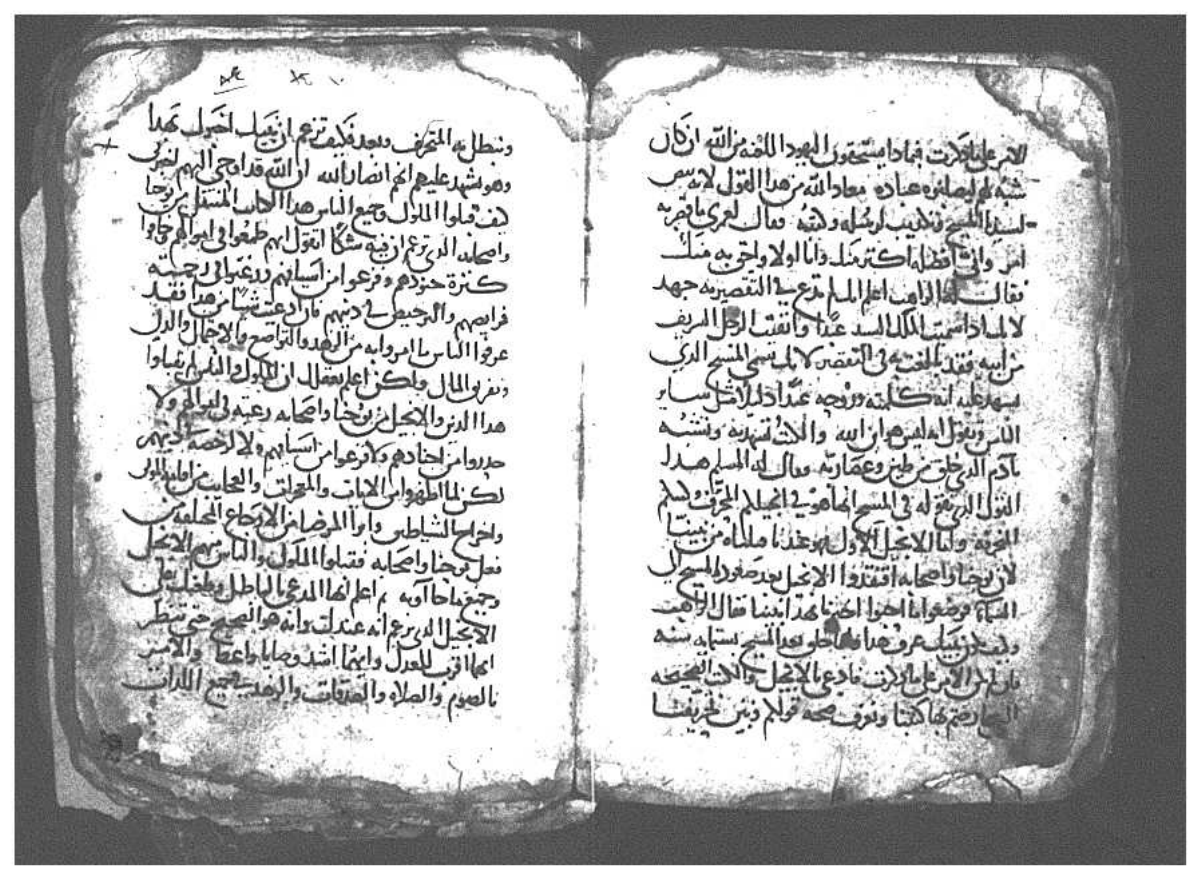 الامر على ما ذكرت فبماذا يستحقون اليهود اللعنه من الله ان كان
شبه لهم ليضلهم عباده معاد الله من هذا القول لانه
لسيدنا المسيح وتكذيب لرسله وكتبه فقال لعمري ما تقر به
امر وانني افضله اكتر منك وانا اولا واحق به منك
فقالت له الراهب اعلم المسلم تدعي في التقصير به جهد
لانك اذا سميت الملك السيد عبدًا وانفيت الرجل الشريف
من ابيه فقد بلغت به في التقصير لانك تسمي المسيح الذي
تشهد عليه انه كلمته وروحه عبدًا دليلًا مثل ساير
الناس وتقول انه ليس هو ابن ابيه والاله تهزيه وتشبه
بادم الذي خلق من طين وعصاربه وقال له المسلم هذا
القول الذي نقوله في المسيح انما هو في انجيلكم المحرف وليكم
التحريه ولنا الانجيل الاول هو عندنا قبلناه من نبينا
لان يوحنا واصحابه افقدوا الانجيل بعد صعود المسيح الى
السماء فوضعوا ما احبوا اخبرنا بهذا نبينا قال الراهب
وكيف كان نبيك عرف هذا وانما جا من بعد المسيح بستمايه سنه
فان لم يكن الامر على ما ذكرت فادعي بالانجيل والكتب الصحيحه
التي عارضتم بها كتبنا ونعرف صحه قولكم وتبين تحريفنا
وتبطل به المتحرف وبعد فكيف تزعم ان نبيك اخبرك بهذا
وهو يشهد عليهم انهم انصار الله ان الله قد اوحى اليهم اخبرني
كيف قبلوا الملوك وجميع الناس هذا الكتاب المستقل من يوحنا
واصحابه الذي تزعم ان فيه شكًا اتقول انهم طمعوا في اموالهم وخافوا
كترة جنودهم وفزعوا من اسبابهم ورغبوا في رخصه
فرايضهم والترخيص في دينهم فان ادعيت شيا من هذا فقد
عرفوا الناس ما امروا به من الزهد والتواضع والاحتمال والدل
وتفريق المال ولكن اعلم يقينًا ان الملوك والناس لم يقبلوا
هذا الدين والانجيل من يوحنا واصحابه رغبه في اموالهم ولا
حذروا من اجنادهم ولا فزعوا من اسبابهم ولا لرخصة دينهم
لكن لما اظهروا من الايات والمعجزات والعجايب من اقامة الموتى
واخراج الشياطين وابروا المرضا من الاوجاع المختلفه من
فعل يوحنا واصحابه فقبلوا الملوك والناس منهم الانجيل
وجميع ما جاوا به ثم اعلم ايها المدعي بالباطل وطعنك على
الانجيل الذي تزعم انه عندك وانه هو الصحيح حتى تنظر
ايهما اقرب للعدل وايهما اشد وصايا واعظ والامر
بالصوم والصلاه والصدقات والزهد في جميع اللذات